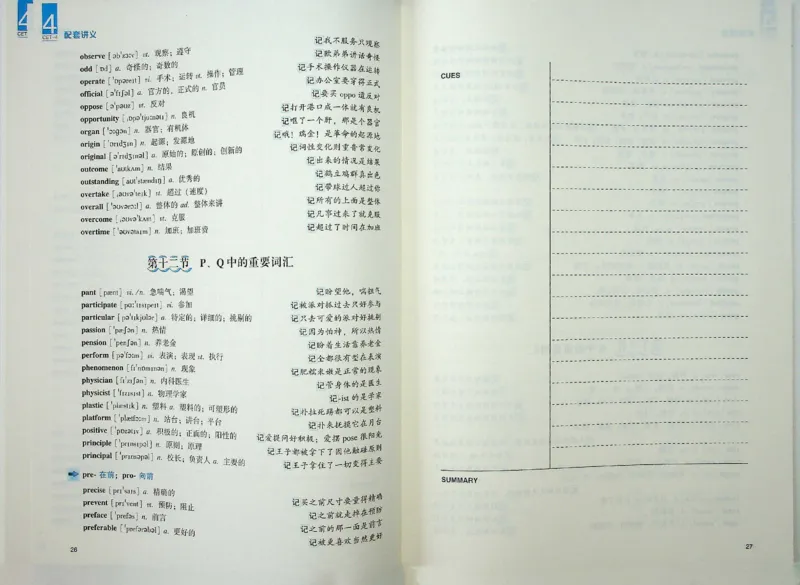 4 CET
4 CET-4 配套讲义
observe [əb'zɜːv] vt. 观察；遵守 记我不服务只观察
odd [ɒd] a. 奇怪的；奇数的 记欧弟弟讲话奇怪
operate ['ɒpəreɪt] vi. 手术；运转 vt. 操作；管理 记手术操作仪器在运转
official [ə'fɪʃəl] a. 官方的、正式的 n. 官员 记办公室要穿得正式
oppose [ə'pəʊz] vt. 反对 记要买 oppo 遭反对
opportunity [ˌɒpə'tjuːnəti] n. 良机 记打开港口成一体就有良机
organ ['ɔːgən] n. 器官；有机体 记哦了一个肝，那是个器官
origin ['ɒrɪdʒɪn] n. 起源；发源地 记哦！瑞金！是革命的起源地
original [ə'rɪdʒɪnəl] a. 原始的；原创的；创新的 记词性变化则重音常变化
outcome ['aʊtkʌm] n. 结果 记出来的情况是结果
outstanding [aʊt'stændɪŋ] a. 优秀的 记鹤立鸡群真出色
overtake [ˌəʊvə'teɪk] vt. 超过（速度） 记带球过人超过你
overall ['əʊvərɔːl] a. 整体的 ad. 整体来讲 记所有的上面是整体
overcome [ˌəʊvə'kʌm] vt. 克服 记几事过来了就克服
overtime ['əʊvətaɪm] n. 加班；加班费 记超过了时间在加班
第十二节 P、Q中的重要词汇
pant [pænt] vi. /n. 急喘气；渴望 记盼望他，喘粗气
participate [pɑː'tɪsɪpeɪt] vi. 参加 记被派对抓过去只好参与
particular [pə'tɪkjʊlər] a. 特定的；详细的；挑剔的 记只去可爱的派对好挑剔
passion ['pæʃən] n. 热情 记因为怕神，所以热情
pension ['penʃən] n. 养老金 记盼着生活靠养老金
perform [pə'fɔːm] vi. 表演；表现 vt. 执行 记全都很有型在表演
phenomenon [fɪ'nɒmɪnən] n. 现象 记肥嫔来嫩是正常的现象
physician [fɪ'zɪʃən] n. 内科医生 记管身体的是医生
physicist ['fɪzɪsɪst] n. 物理学家 记-ist 的是学家
plastic ['plæstɪk] n. 塑料 a. 塑料的；可塑形的 记扑拉死踢都可以是塑料
platform ['plætfɔːm] n. 站台；讲台；平台 记扑来抚摸它在月台
positive ['pɒzətɪv] a. 积极的；正面的；阳性的 记爱提问好积极；爱摆 pose 很阳光
principle ['prɪnsɪpəl] n. 原则；原理 记王子都被拿下了因他触碰原则
principal ['prɪnsəpəl] n. 校长；负责人 a. 主要的 记王子拿住了一切变得主要
pre- 在前；pro- 向前
precise [prɪ'saɪs] a. 精确的 记买之前尺寸要量得精确
prevent [prɪ'vent] vt. 预防；阻止 记之前就走掉在预防
preface ['prefəs] n. 前言 记之前的那一面是前言
preferable ['prefərəbəl] a. 更好的 记被更喜欢当然更好
26
CUES
SUMMARY
27